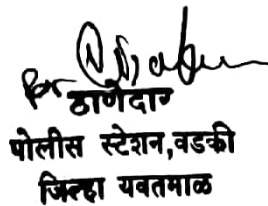 ठाणेदार
पोलीस स्टेशन,वडकी
जिल्हा यवतमाळ